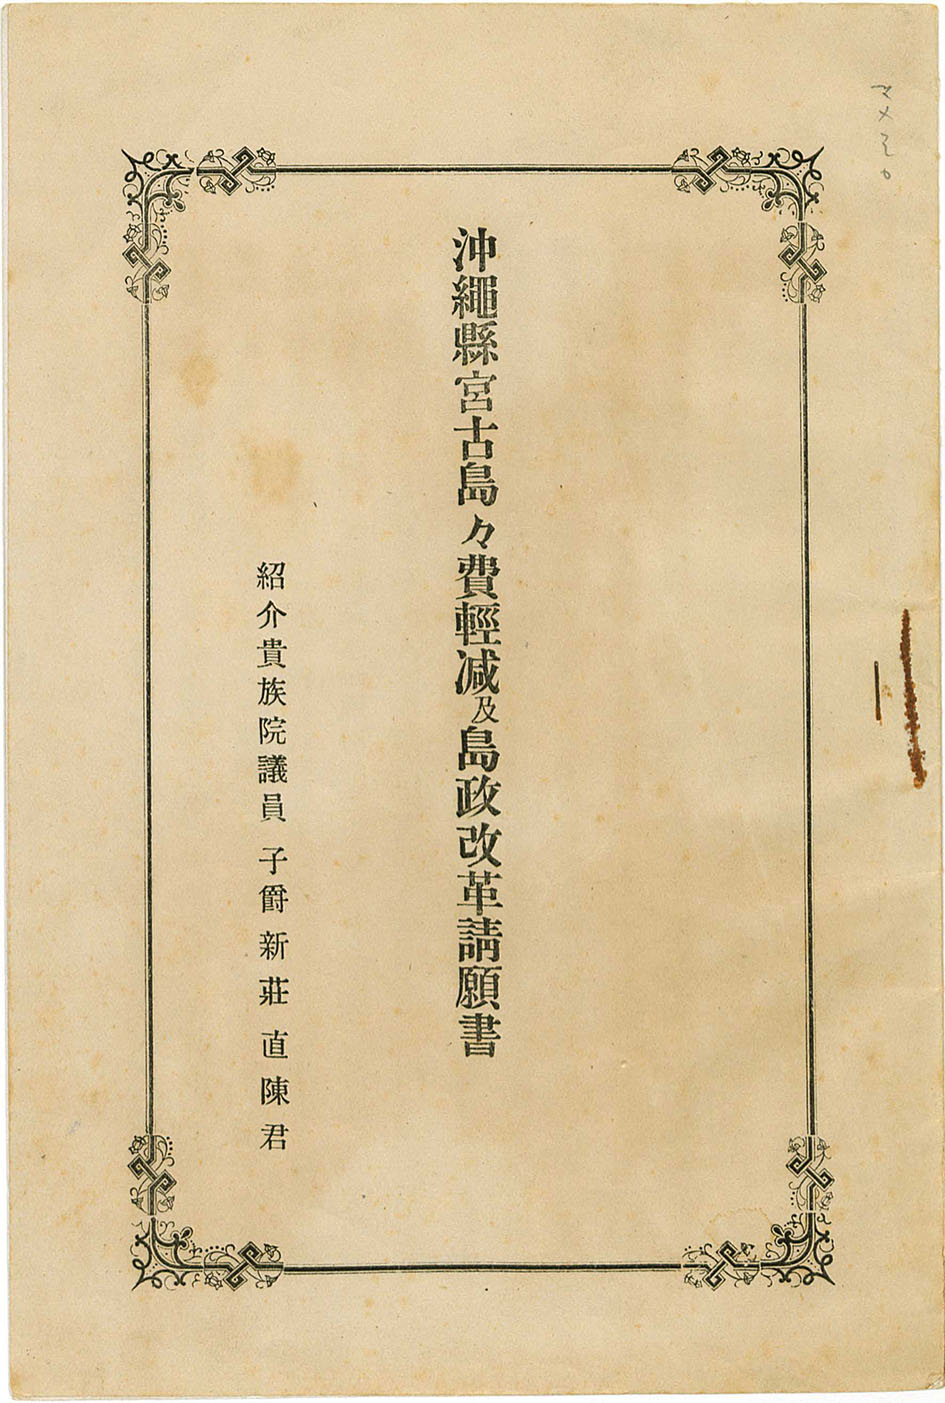 沖繩縣宮古島々費輕减及島政改革請願書
紹介貴族院議員 子爵 新莊直陳君